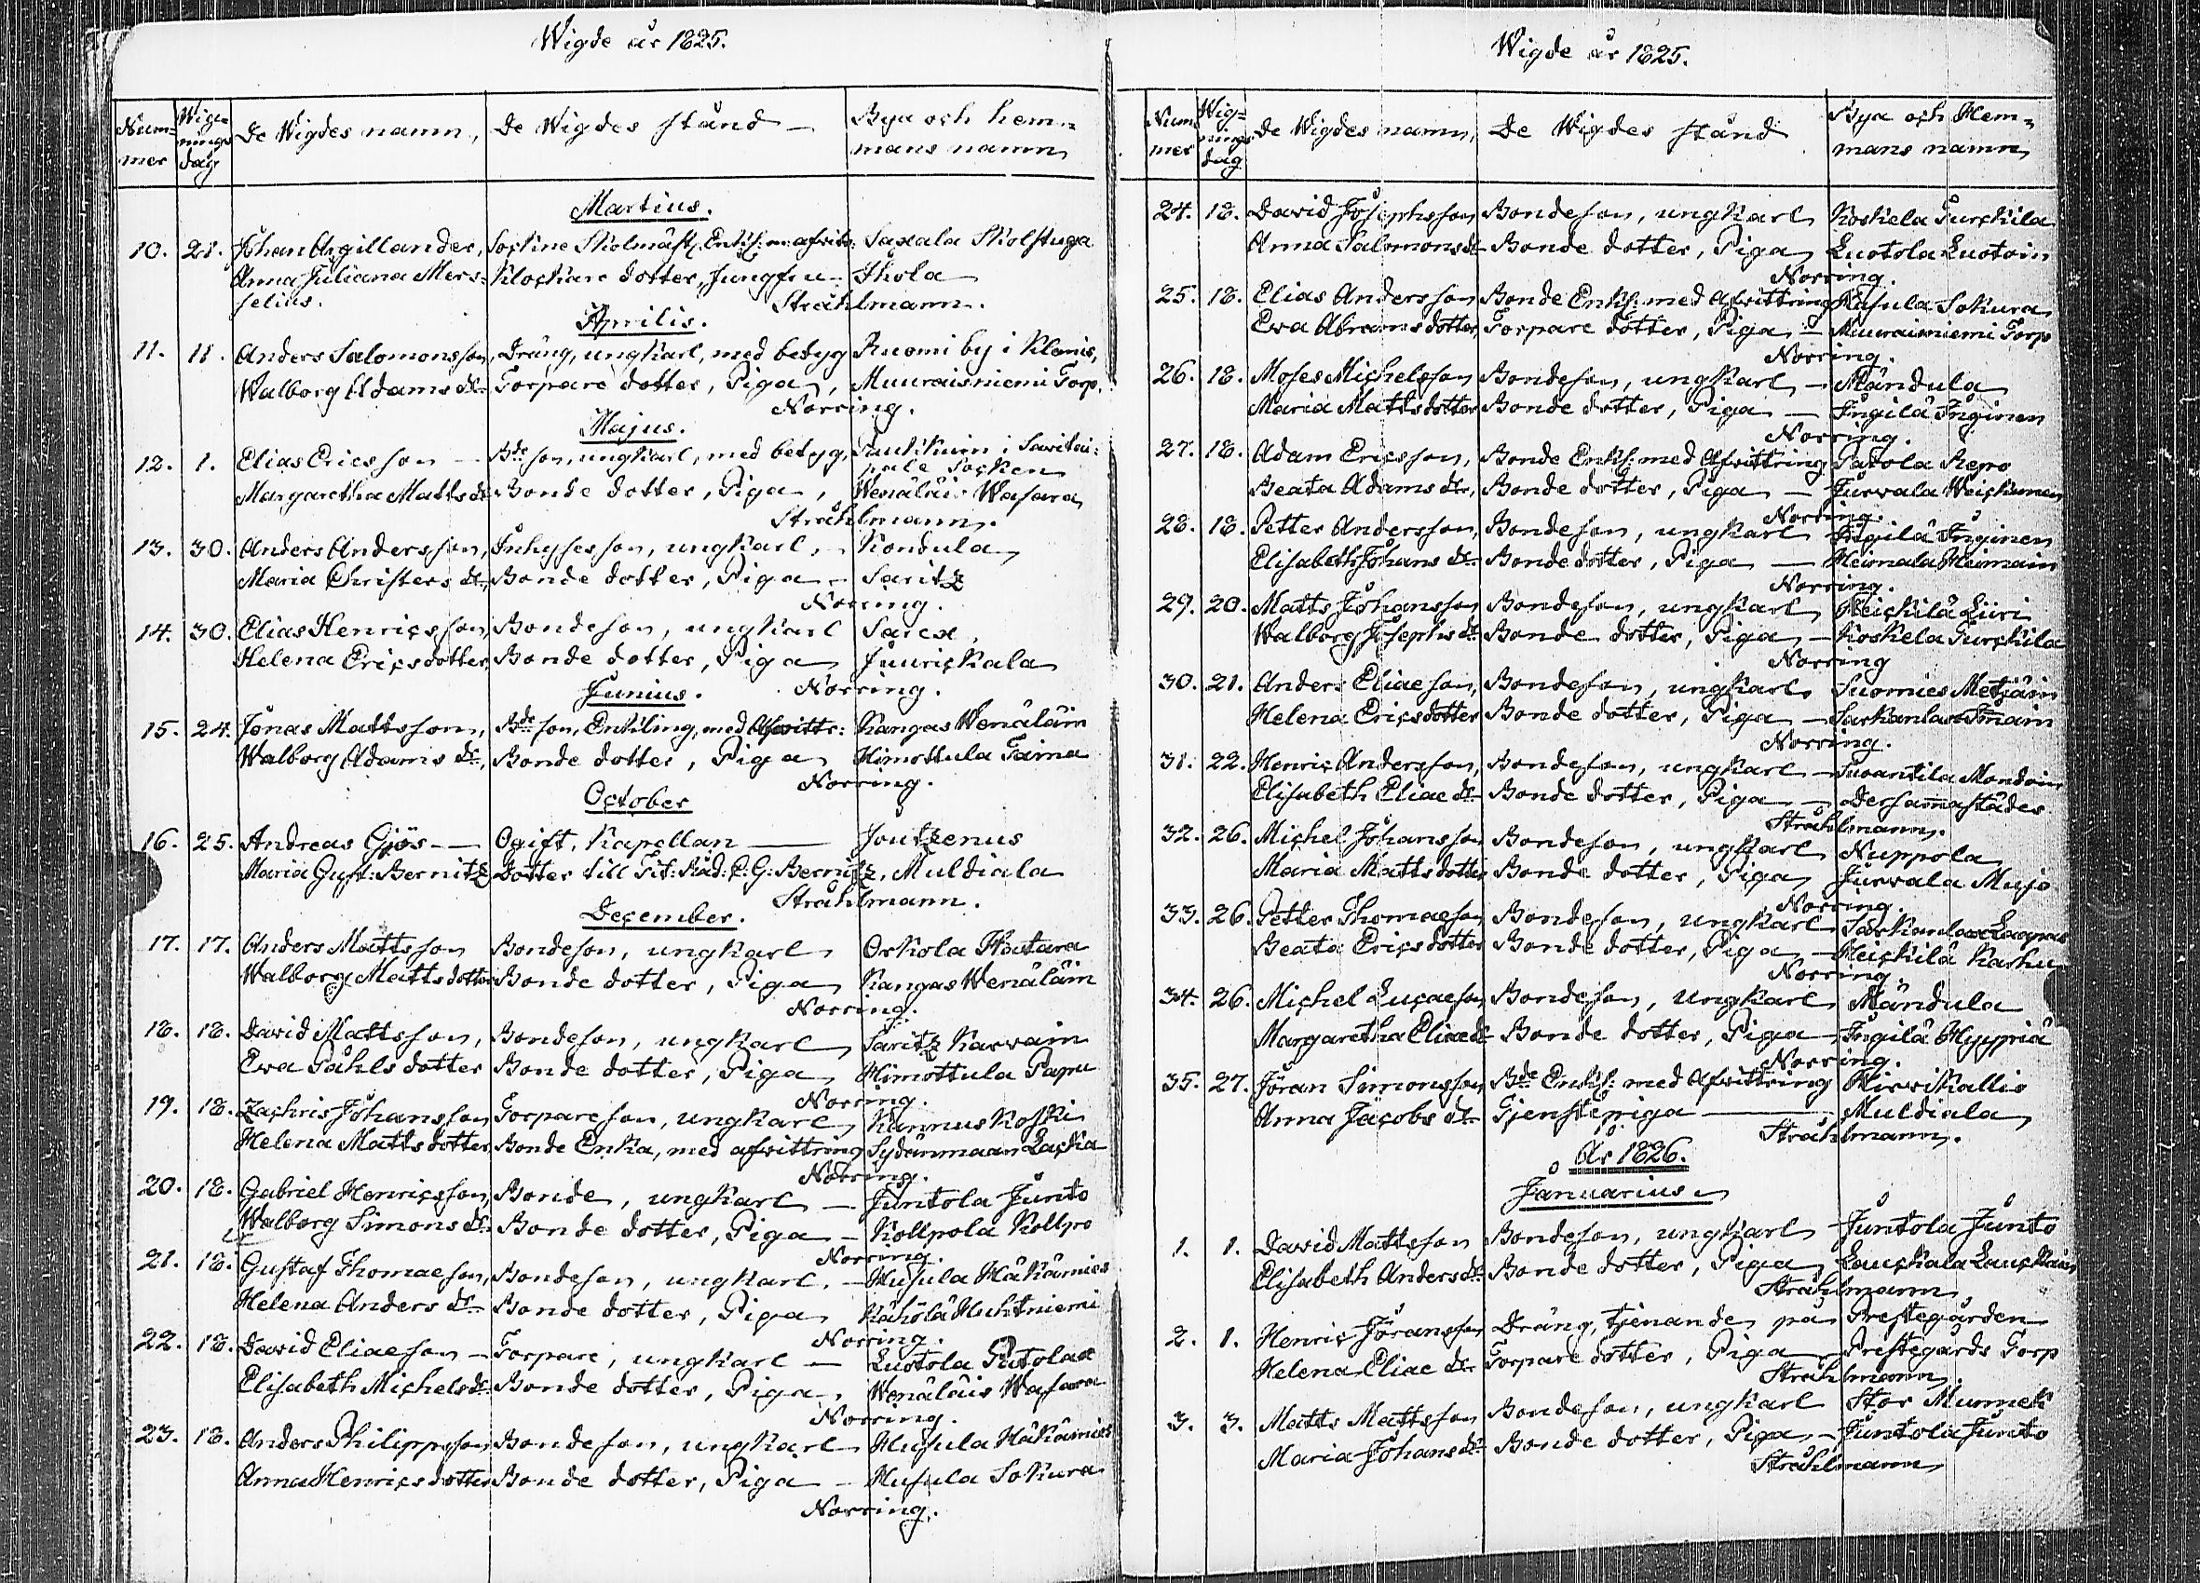 Wigde år 1825.
Num- Wig- De Wigdes namn, De Wigdes stånd — Bya och hem-
mer nings dag mans namn
Martius.
10. 21. Johan Argillander, Sockne Skolmäst. Enkl: m: afvitr: Saxala Skolstuga
Anna Juliana Mers- Klockare dotter, Jungfru - Ihola
selius. Stråhlmann.
Aprilis.
11. 11. Anders Salomonsson, Dräng, ungkarl, med betyg Ruomi by i Klemis,
Walborg Adams dr Torpare dotter, Piga, Muuraisniemi Torp.
Norring.
Majus.
12. 1. Elias Ericsson — Bde son, ungkarl, med betyg, i Savitai-
pale Socken
Margaretha Matts dr Bonde dotter, Piga, Wenäläis Wasara
Stråhlmann.
13. 30. Anders Andersson, Inhysesson, ungkarl, - Kondula
Maria Christers dr Bonde dotter, Piga - Saritz
Norring.
14. 30. Elias Henricsson, Bondeson, ungkarl Sarex,
Helena Ericsdotter, Bonde dotter, Piga Juurickala
Norring.
Junius.
15. 24. Jonas Mattsson, Bde son, Enkling, med Afvittr: Kangas Wenäläin
Walborg Adams dr, Bonde dotter, Piga Himottula Taina
Norring.
October
16. 25. Andreas Gjös — Ogift, Kapellan — Joutzenus
Maria Gust: Bernitz Dotter till Tit: Råd: C: G: Bernitz, Muldiala
Stråhlmann.
December.
17. 17. Anders Mattsson Bondeson, ungkarl Orkola Hatara
Walborg Mattsdotter Bonde dotter, Piga Kangas Wenäläin
Norring.
18. 18. David Mattsson, Bondeson, ungkarl Saritz Karvain
Eva Påhlsdotter Bonde dotter, Piga Himottula Papu
Norring.
19. 18. Zachris Johansson Torpareson, ungkarl Kannuskoski
Helena Mattsdotter Bonde Enka, med afvittring Sydänmaan Laska
Norring.
20. 18. Gabriel Henricsson, Bonde, ungkarl — Juntola Junto
Walborg Simons dr Bonde dotter, Piga - Kollpola Kollpo
Norring.
21. 18. Gustaf Thomaeson, Bondeson, ungkarl. - Husula Häkämies
Helena Anders dr Bonde dotter, Piga Kähölä Huhtniemi
Norring.
22. 18. David Eliaeson - Torpare, ungkarl — Luotola
Elisabeth Michels dr Bonde dotter, Piga, Wenäläis Wasara
Norring.
23. 18. Anders Philippsson Bondeson, ungkarl Husula Häkämies
Anna Henricsdotter Bonde dotter, Piga - Husula Sokura
Norring.
Wigde år 1825.
Num- Wig- De Wigdes namn, De Wigdes stånd Bya och Hem-
mer nings dag mans namn
24. 18. David Josephsson Bondeson, ungkarl Koskela Turckila
Anna Salomons dr Bonde dotter, Piga Luotola Luotoin
Norring.
25. 18. Elias Andersson Bonde Enkl: med Afvittring Husula Sokura
Eva Abramsdotter, Torpare dotter, Piga - Muuraisniemi Torp
Norring.
26. 18. Moses Michelsson Bondeson, ungkarl - Mändula
Maria Mattsdotter Bonde dotter, Piga — Ingilä Inginen
Norring.
27. 18. Adam Ericsson, Bonde Enkl: med Afvittring Patola Repo
Beata Adams dr, Bonde dotter, Piga — Jurvala
Norring.
28. 18. Petter Andersson, Bondeson, ungkarl Ingilä Inginen
Elisabeth Johans dr Bonde dotter, Piga — Heimala Heimain
Norring.
29. 20. Matts Johansson Bondeson, ungkarl Heickilä Liiri
Walborg Josephs dr Bonde dotter, Piga - Koskela Turckila
Norring
30. 21. Anders Eliaeson, Bondeson, ungkarl Suomies Metjäin
Helena Ericsdotter Bonde dotter, Piga -
Norring.
31. 22. Henric Andersson, Bondeson, ungkarl - Suoantila Mondoin
Elisabeth Eliae dr Bonde dotter, Piga - dersammastädes
Stråhlmann.
32. 26. Michel Johansson Bondeson, ungkarl Nuppola
Maria Mattsdotter Bonde dotter, Piga Jurvala Mujo
Norring.
33. 26. Petter Thomaeson Bondeson, ungkarl
Beata Ericsdotter Bonde dotter, Piga - Heickilä Karhu
Norring.
34. 26. Michel Lucaeson Bondeson, ungkarl Mändula
Margaretha Eliae dr Bonde dotter, Piga - Ingilä Hyypiä
Norring.
35. 27. Jöran Simonsson, Bde Enkl: med Afvittring Hirvikallio
Anna Jacobs dr Tjenstepiga — Muldiala
Stråhlmann.
År 1826.
Januarius.
1. 1. David Mattsson Bondeson, ungkarl Juntola Junto
Elisabeth Anders dr Bonde dotter, Piga Lauckala Lauckain
Stråhlmann
2. 1. Henric Jöransson Dräng, tjenande på Prestegården
Helena Eliae dr Torpare dotter, Piga Prestegårds Torp
Stråhlmann.
3. 3. Matts Mattsson Bondeson, ungkarl Stor Munnek
Maria Johans dr Bonde dotter, Piga - Juntola Junto
Stråhlmann